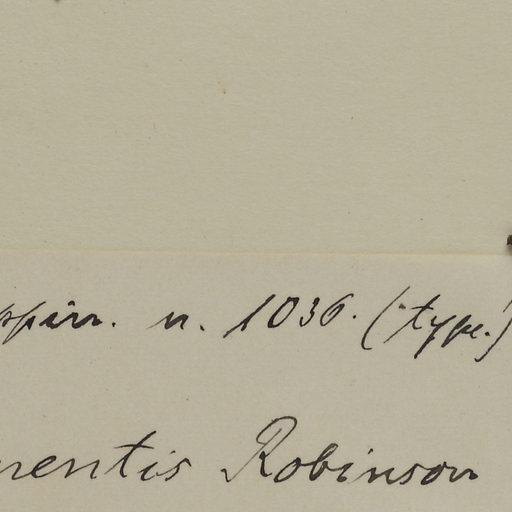 ppin. n. 1036. (type.)
mentis Robinson